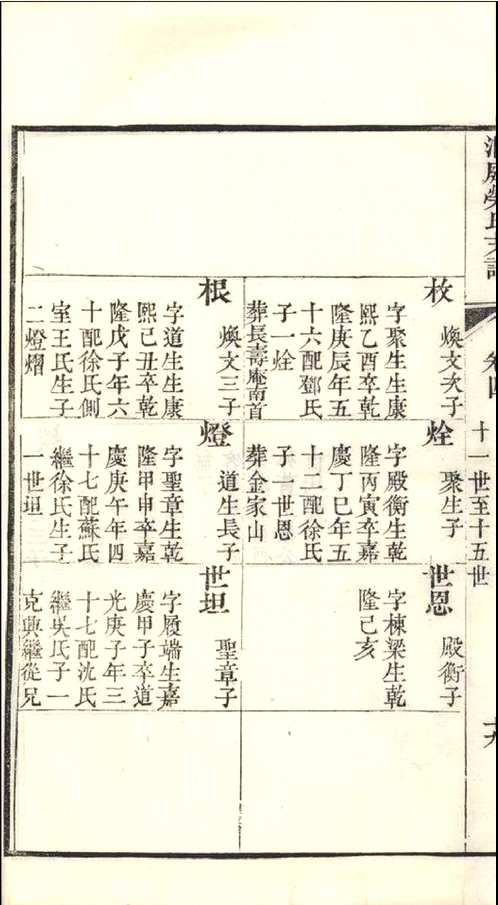 卷四
十一世至十五世
枚
煥文次子
字聚生生康
熙乙酉卒乾
隆庚辰年五
十六配鄧氏
子一烇
葬長壽庵南首
烇
聚生子
字殿衡生乾
隆丙寅卒嘉
慶丁巳年五
十二配徐氏
子一世恩
葬金家山
世恩
殿衡子
字棟梁生乾
隆己亥
根
煥文三子
字道生生康
熙己丑卒乾
隆戊子年六
十配徐氏側
室王氏生子
二燈熠
燈
道生長子
字聖章生乾
隆甲申卒嘉
慶庚午年四
十七配蘇氏
繼徐氏生子
一世坦
世坦
聖章子
字履端生嘉
慶甲子卒道
光庚子年三
十七配沈氏
繼吳氏子一
克興繼從兄